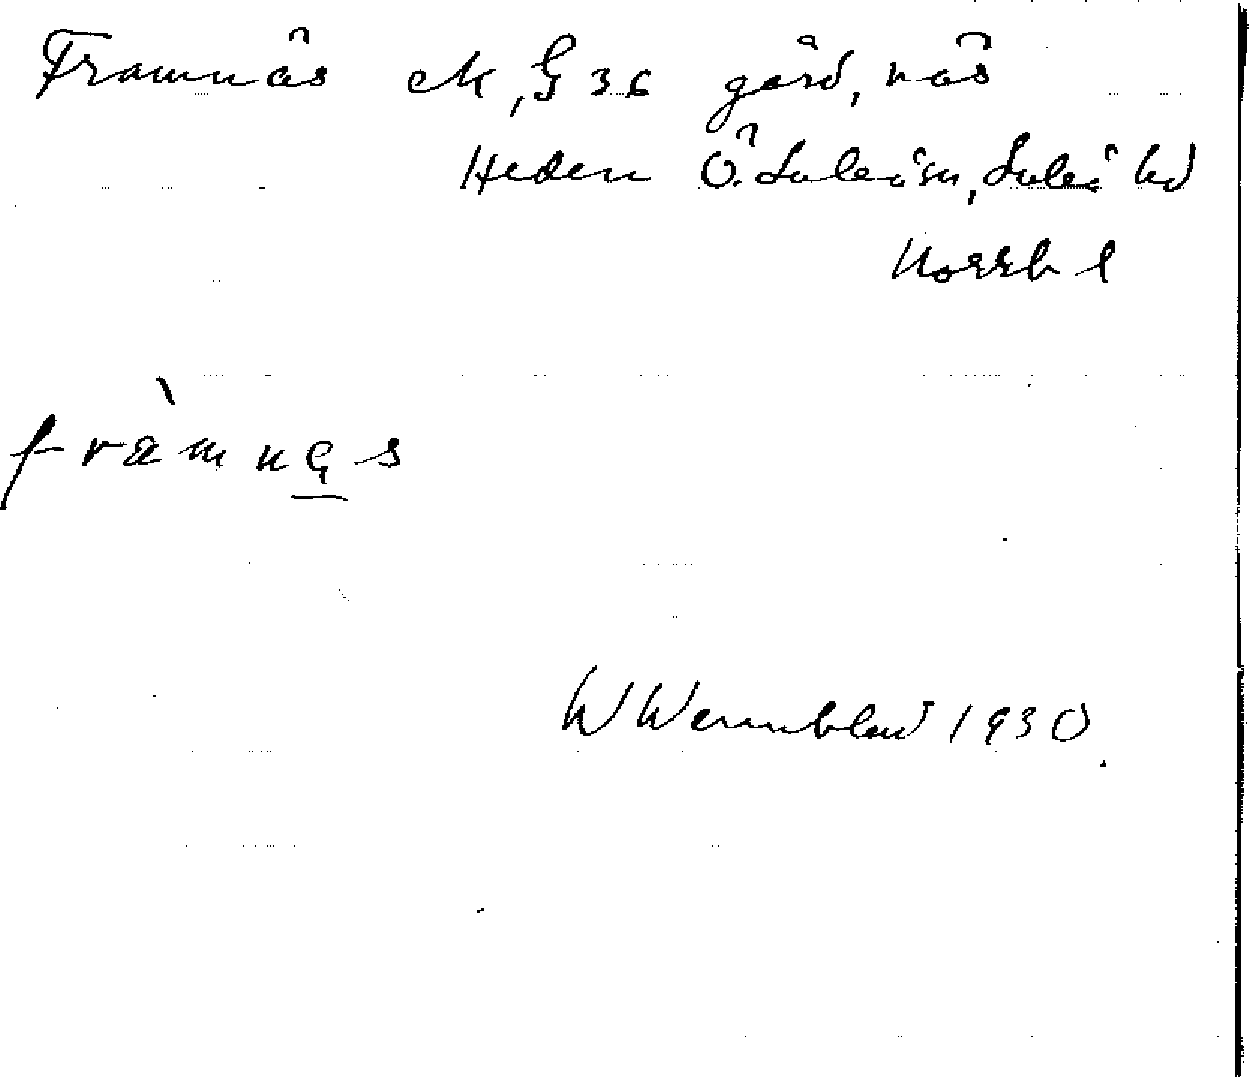 Framnäs eM, G 36 gård, näs
Heden Ö. Luleå sn, Luleå hd
Norrb l
fràmnęs
W Wennblad 1930